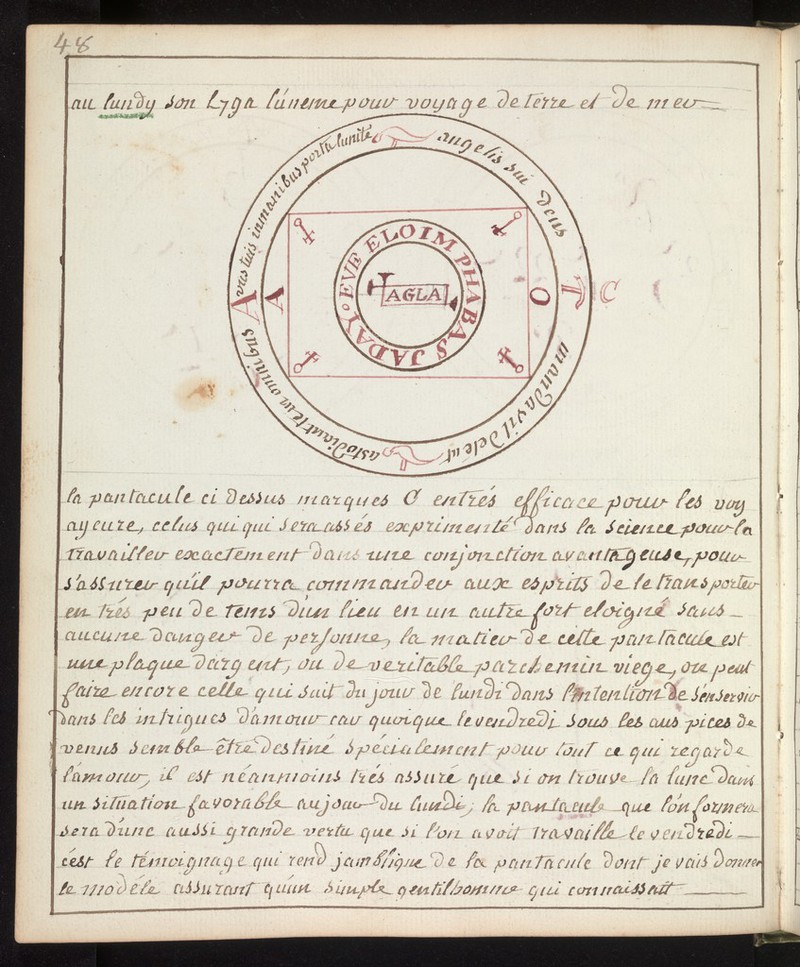 48
au lundy son L79a lúneme pour voyage de terre et de mer
angelis sui deus
mandavil dele ut
custodiant te in omnibus
vus tuis inmanibus portu lunité
A T C
A O
EVE ELOIM PHABAS JADAY
AGLA
la pantacule ci dessus marqués C entrés efficace pour les voy
ayeure, celus qui qui sera assés exprimenté dans la science pour la
travailler exactement dans une conjonction avantageuse, pour
s'assurer quil pourra commander aux esprits de le transporter
en trés peu de tems dun lieu en un autre fort eloigné sans
aucune danger de personne, la matier de cette pantacule est
une plaque dargent, ou de veritable parchemin viege, on peut
faire encore celle qui suit du jour de lundi dans l'intention de sénservir
dans les intrigues damour car quoique le vendredi sous les auspices de
venus semble être destiné spécialement pour tout ce qui regarde
l'amour, il est néanmoins trés assuré que si on trouve la lune dans
un situation favorable au jour du lundi, la pantacule que lón formera
sera dune aussi grande vertu que si l'on avoit travaillé le vendredi
cést le témoignage qui rend jamblique de la pantacule dont je vais donner
le modéle assurant quun simple gentilhomme qui connaissait